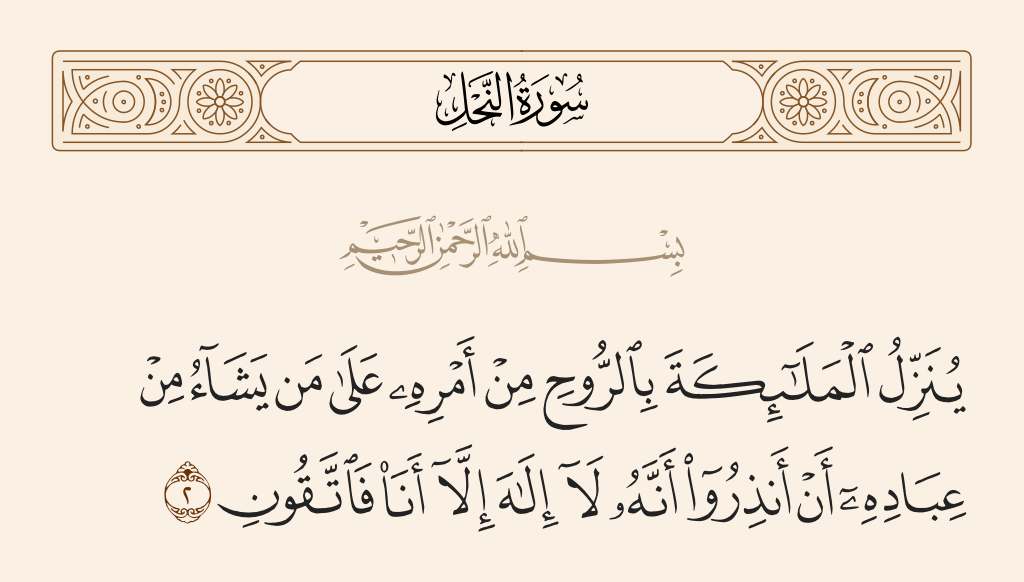 سُورَةُ النَّحْلِ
بِسْمِ ٱللَّهِ ٱلرَّحْمَٰنِ ٱلرَّحِيمِ
يُنَزِّلُ ٱلْمَلَٰٓئِكَةَ بِٱلرُّوحِ مِنْ أَمْرِهِۦ عَلَىٰ مَن يَشَآءُ مِنْ
عِبَادِهِۦٓ أَنْ أَنذِرُوٓا۟ أَنَّهُۥ لَآ إِلَٰهَ إِلَّآ أَنَا۠ فَٱتَّقُونِ ٢